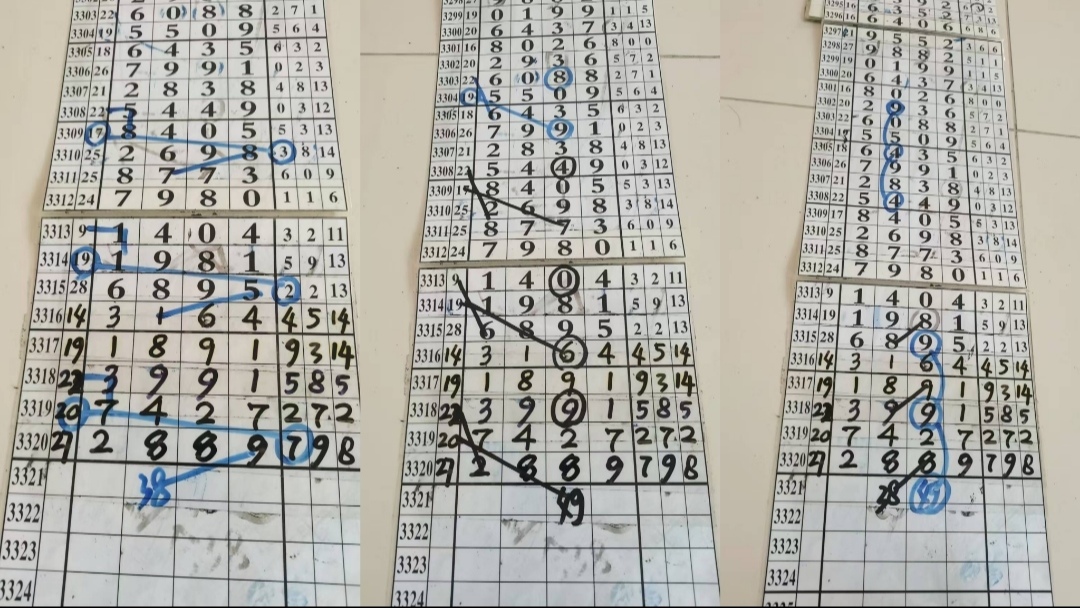 3303 22 6 0 8 8 2 7 1
3304 19 5 5 0 9 5 6 4
3305 18 6 4 3 5 6 3 2
3306 26 7 9 9 1 0 2 3
3307 21 2 8 3 8 4 8 13
3308 22 5 4 4 9 0 3 12
3309 17 8 4 0 5 5 3 13
3310 25 2 6 9 8 3 8 14
3311 25 8 7 7 3 6 0 9
3312 24 7 9 8 0 1 1 6
3313 9 1 4 0 4 3 2 11
3314 19 1 9 8 1 5 9 13
3315 28 6 8 9 5 2 2 13
3316 14 3 1 6 4 4 5 14
3317 19 1 8 9 1 9 3 14
3318 22 3 9 9 1 5 8 5
3319 20 7 4 2 7 2 7 2
3320 27 2 8 8 9 7 9 8
3321 38
3322
3323
3324
3299 19 0 1 9 9 1 1 5
3300 20 6 4 3 7 3 4 13
3301 16 8 0 2 6 8 0 0
3302 20 2 9 3 6 5 7 2
3303 22 6 0 8 8 2 7 1
3304 19 5 5 0 9 5 6 4
3305 18 6 4 3 5 6 3 2
3306 26 7 9 9 1 0 2 3
3307 21 2 8 3 8 4 8 13
3308 22 5 4 4 9 0 3 12
3309 17 8 4 0 5 5 3 13
3310 25 2 6 9 8 3 8 14
3311 25 8 7 7 3 6 0 9
3312 24 7 9 8 0 1 1 6
3313 9 1 4 0 4 3 2 11
3314 19 1 9 8 1 5 9 13
3315 28 6 8 9 5 2 2 13
3316 14 3 1 6 4 4 5 14
3317 19 1 8 9 1 9 3 14
3318 22 3 9 9 1 5 8 5
3319 20 7 4 2 7 2 7 2
3320 27 2 8 8 9 7 9 8
3321 49
3322
3323
3324
3296 16 6 4 0 6
3297 9 5 5 2 3 6 6
3298 27 9 8 8 2
3299 19 0 1 9 9 1 1 5
3300 20 6 4 3 7 3 4 13
3301 16 8 0 2 6 8 0 0
3302 20 2 9 3 6 5 7 2
3303 22 6 0 8 8 2 7 1
3304 19 5 5 0 9 5 6 4
3305 18 6 4 3 5 6 3 2
3306 26 7 9 9 1 0 2 3
3307 21 2 8 3 8 4 8 13
3308 22 5 4 4 9 0 3 12
3309 17 8 4 0 5 5 3 13
3310 25 2 6 9 8 3 8 14
3311 25 8 7 7 3 6 0 9
3312 24 7 9 8 0 1 1 6
3313 9 1 4 0 4 3 2 11
3314 19 1 9 8 1 5 9 13
3315 28 6 8 9 5 2 2 13
3316 14 3 1 6 4 4 5 14
3317 19 1 8 9 1 9 3 14
3318 22 3 9 9 1 5 8 5
3319 20 7 4 2 7 2 7 2
3320 27 2 8 8 9 7 9 8
3321 38 49
3322
3323
3324